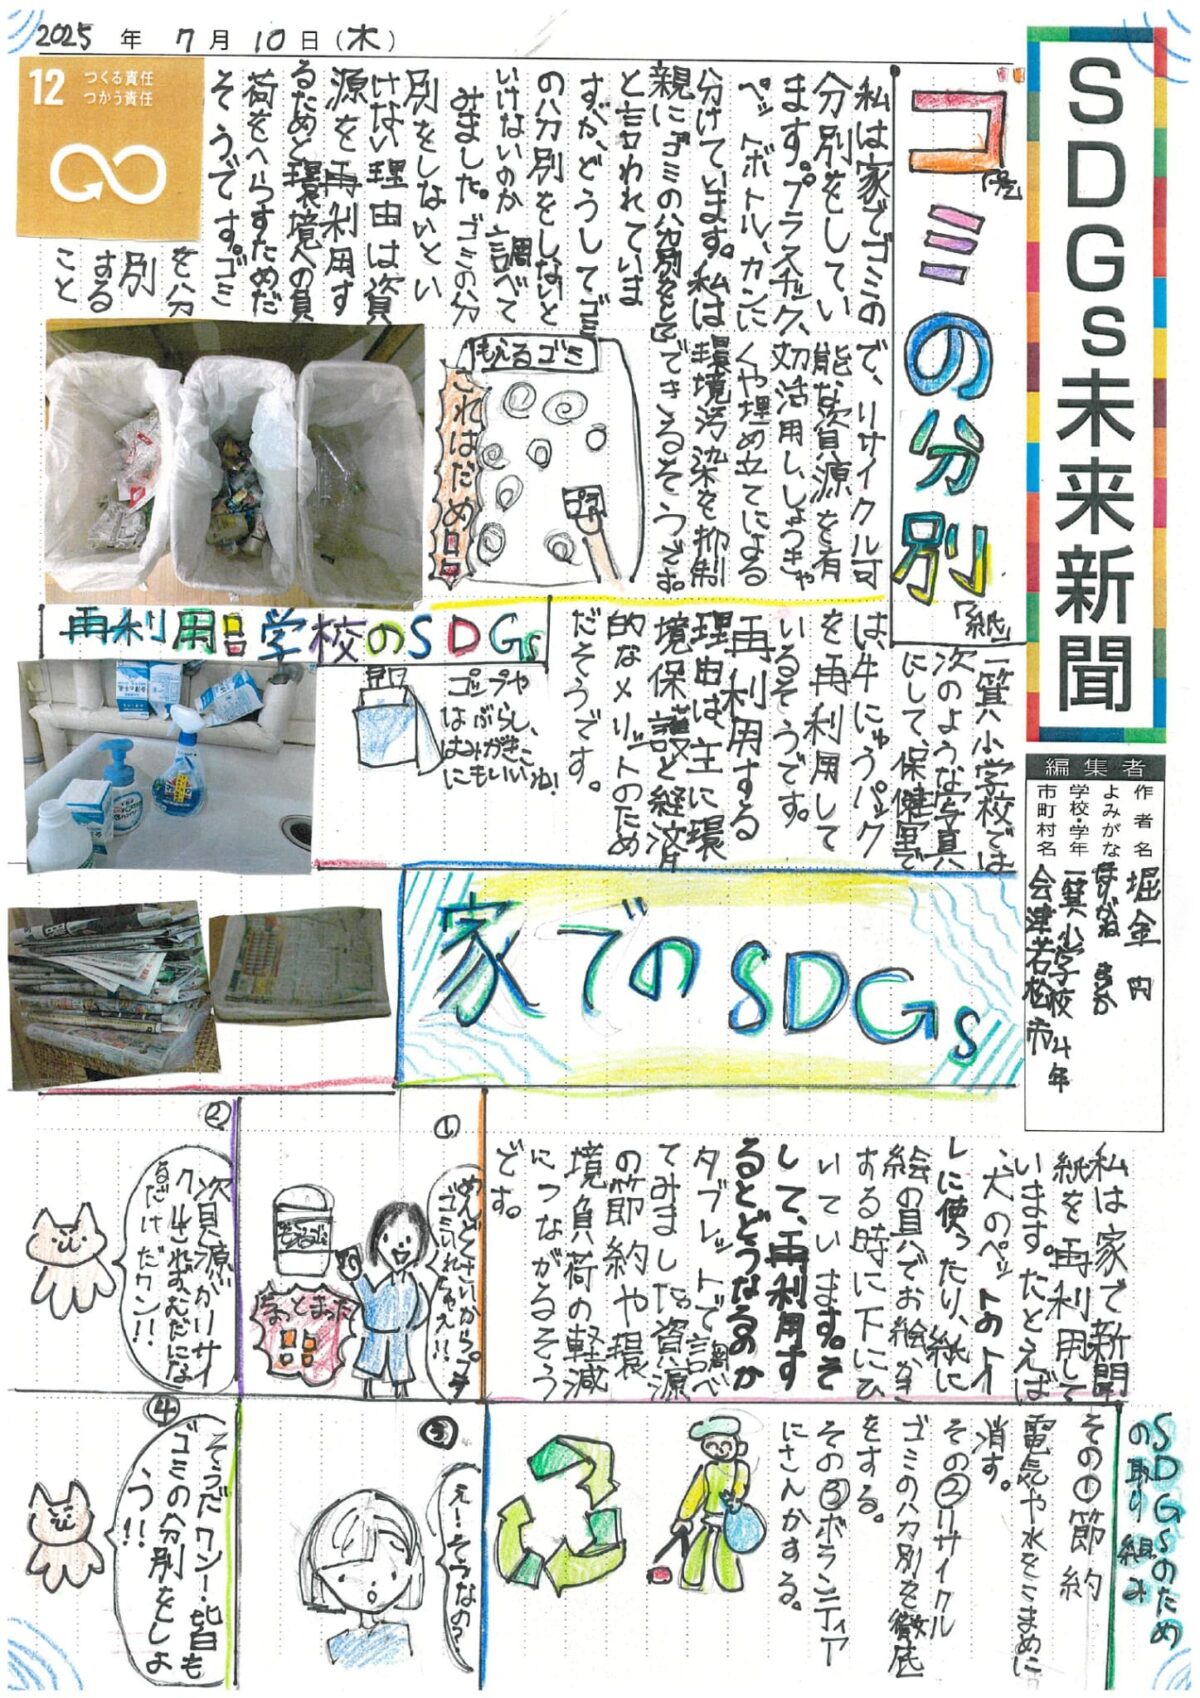 2025年7月10日(木)
SDGs未来新聞
編集者
作者名 堀金 円
よみがな ほりがね まどか
学校・学年 一箕小学校4年
市町村名 会津若松市
12 つくる責任
つかう責任
ゴミの分別
「紙」
私は家でゴミの
分別をしてい
ます。プラスチック、
ペットボトル、カンに
分けています。私は
親に「ゴミの分別をして」
と言われていま
すが、どうしてゴミ
の分別をしないと
いけないのか調べて
みました。ゴミの分
別をしないとい
けない理由は資
源を再利用す
るためと環境への負
荷をへらすためだ
そうです。ゴミ
を分
別
する
こと
で、リサイクル可
能な資源を有
効活用し、しょうきゃ
くや埋め立てによる
環境汚染を抑制
できるそうです。
もえるゴミ
プラ
これはだめ!!
再利用!!学校のSDGs
一箕小学校では
次のような写真
にして、保健室で
は、牛にゅうパック
を再利用して
いるそうです。
再利用する
理由は、主に環
境保護と経済
的なメリットのため
だそうです。
家でのSDGs
私は家で新聞
紙を再利用して
います。たとえば
、犬のペットのトイ
レに使ったり、紙に
絵の具でお絵かき
する時に下にひ
いています。そ
して、再利用す
るとどうなるのか
タブレットで調べ
てみました。資源
の節約や環
境負荷の軽減
につながるそう
です。
①
めんどくさいから、プラ
ゴミいれちゃえ!!
もえるゴミ
ちょっとまった!!
②
資源がリサイ
クルされずむだにな
るだけだワン!!
③
え!そうなの?
④
そうだワン!皆も
ゴミの分別をしよ
う!!
SDGsのため
の取り組み
その①節約
電気や水をこまめに
消す。
その②リサイクル
ゴミの分別を徹底
をする。
その③ボランティア
にさんかする。